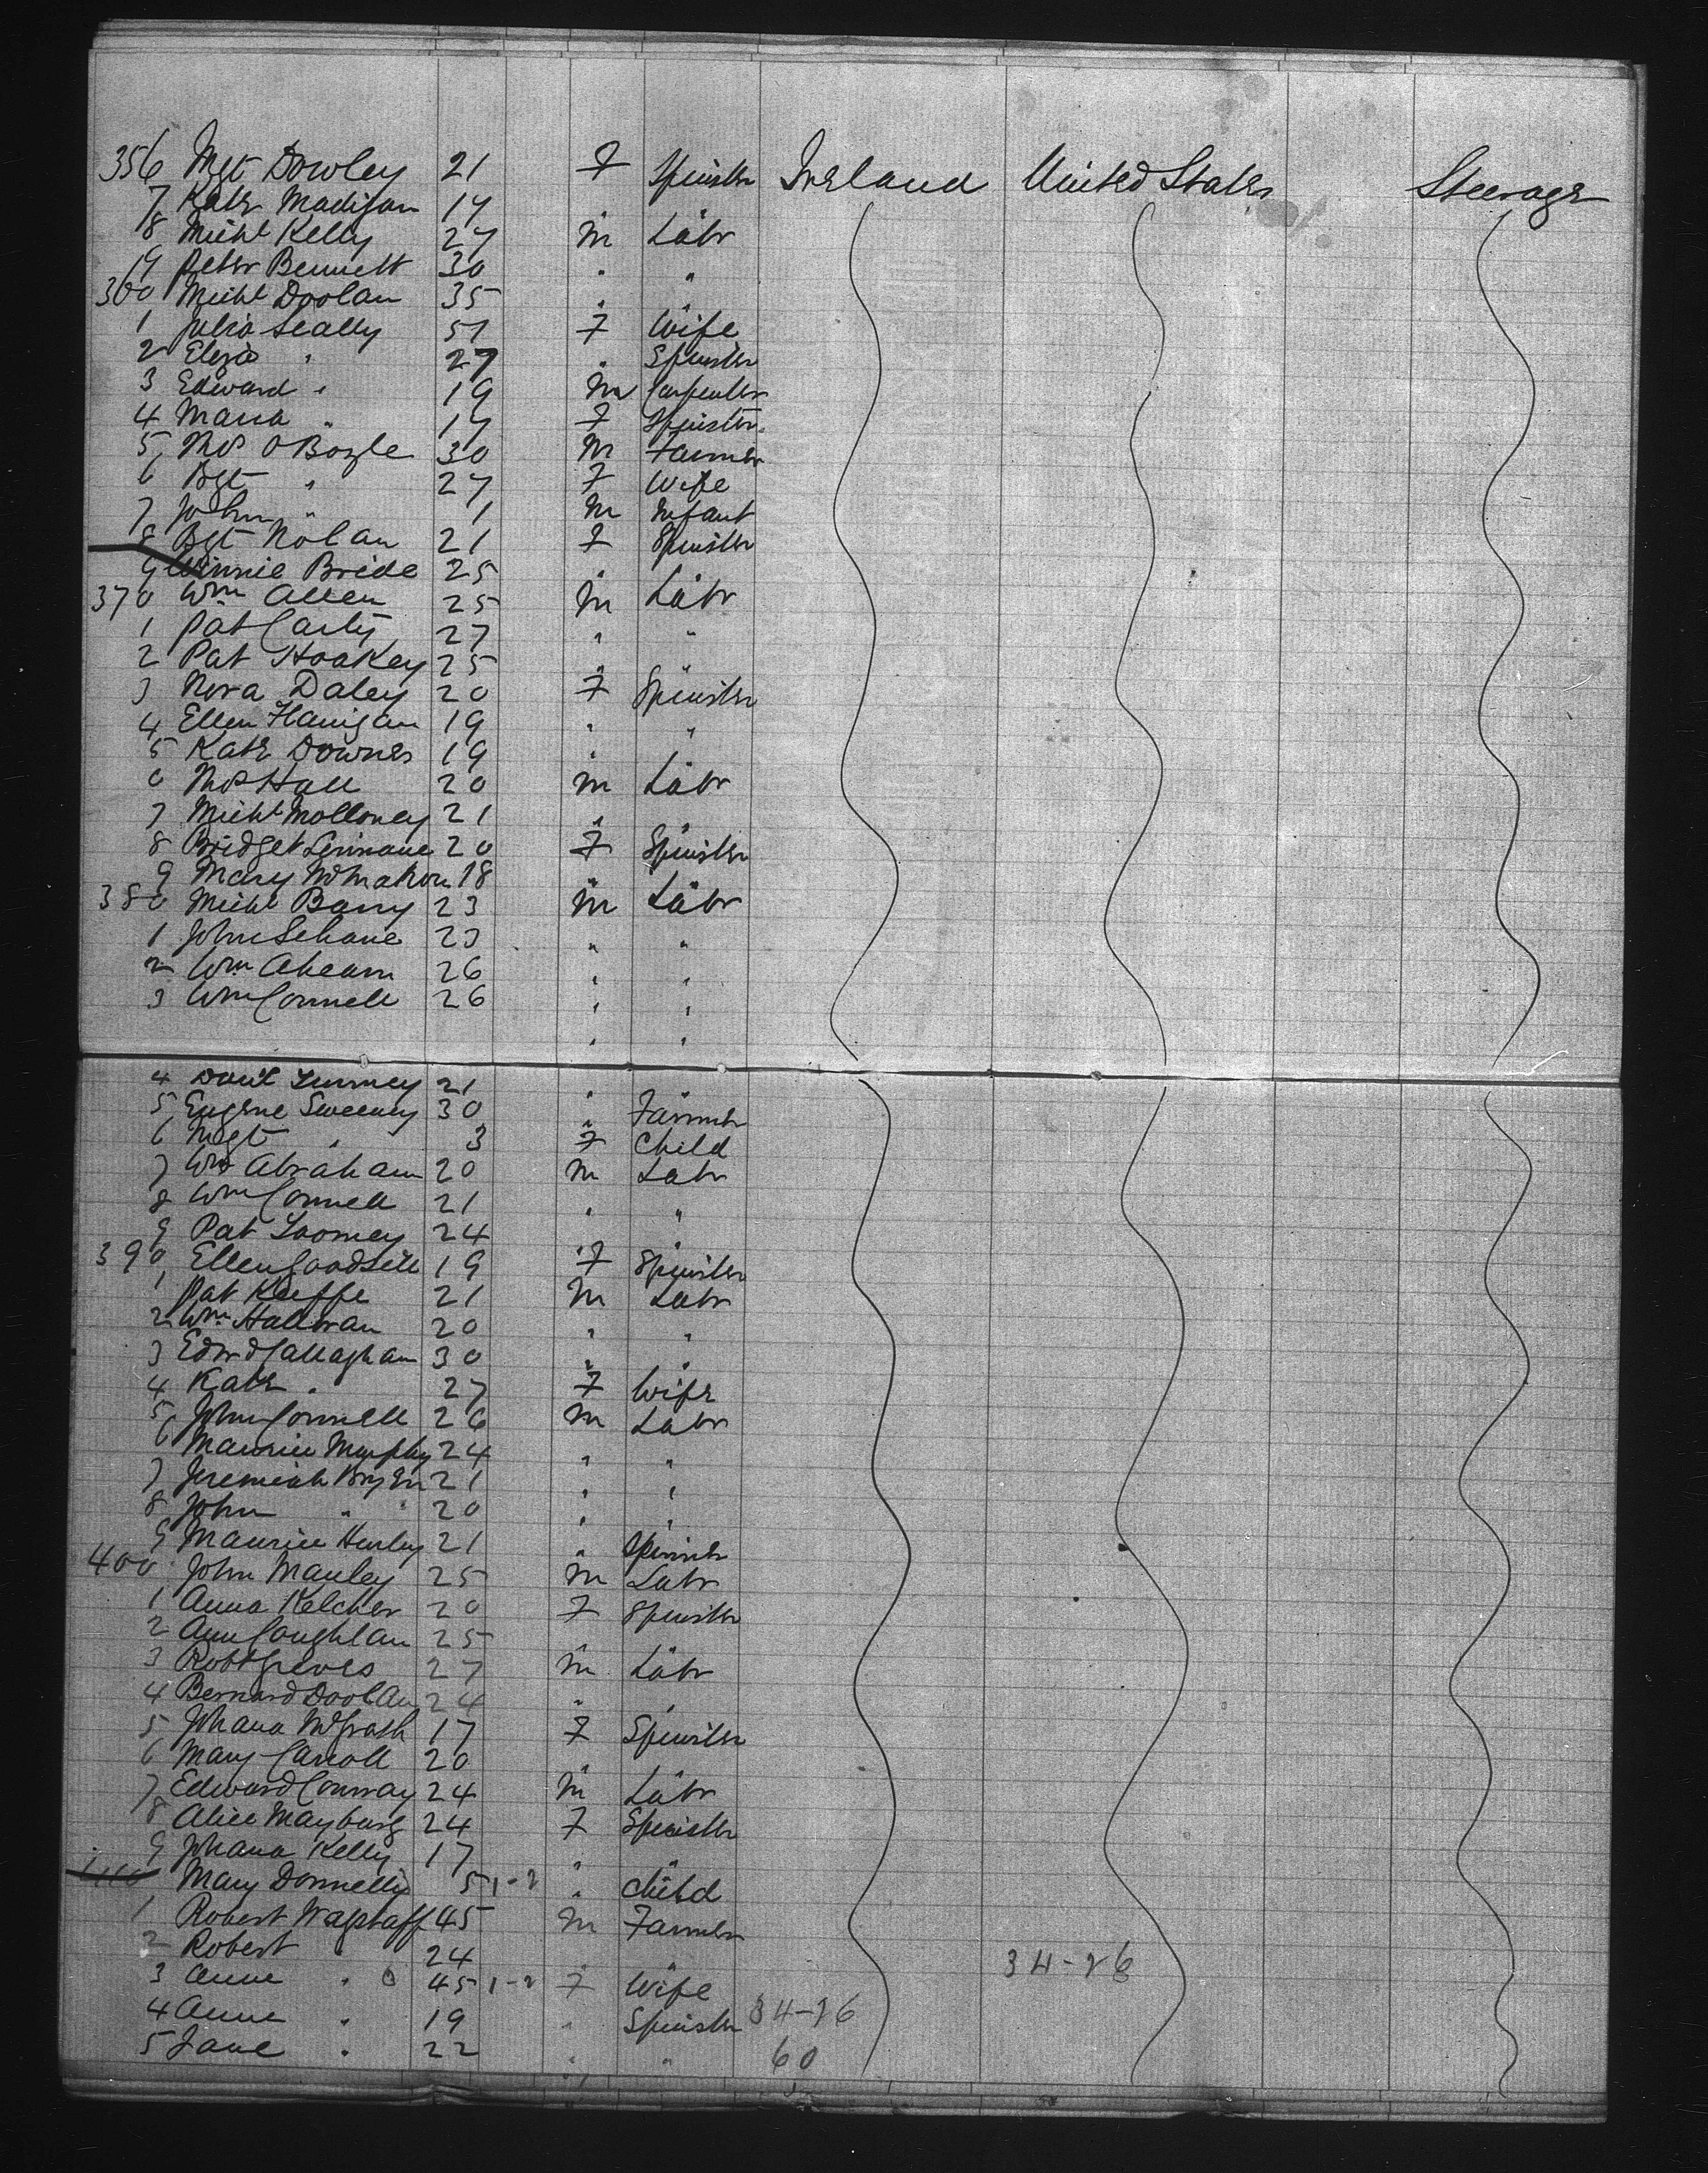 356 Mgt Dowley 21 F Spinster Ireland United States Steerage
7 Kate Madigan 17 "
8 Michl Kelly 27 M Labr
9 Peter Bennett 30 " "
360 Michl Doolan 35 " "
1 Julia Scally 51 F Wife
2 Eliza " 27 " Spinster
3 Edward " 19 M Carpenter
4 Maria " 17 F Spinster
5 Thos O Boyle 30 M Farmer
6 Bgt " 27 F Wife
7 John " 1 M Infant
8 Bgt Nolan 21 F Spinster
9 Winnie Bride 25 "
370 Wm Allen 25 M Labr
1 Pat Carty 27 " "
2 Pat Hoakey 25 " "
3 Nora Daley 20 F Spinster
4 Ellen Flanigan 19 " "
5 Kate Downes 19 "
6 Thos Hall 20 M Labr
7 Michl Molloney 21 "
8 Bridget Linnane 20 F Spinster
9 Mary McMahon 18 "
380 Michl Barry 23 M Labr
1 John Sehane 23 " "
2 Wm Ahearn 26 " "
3 Wm Connell 26 " "
" "
4 Danl Twomey 21 "
5 Eugene Sweeney 30 " Farmer
6 Mgt " 3 F Child
7 Wm Abraham 20 M Labr
8 Wm Connell 21 " "
9 Pat Toomey 24 "
390 Ellen Goodsill 19 F Spinster
1 Pat Keeffe 21 M Labr
2 Wm Halloran 20 " "
3 Edwd Callaghan 30 " "
4 Kate " 27 F Wife
5 John Connell 26 M Labr
6 Maurice Murphy 24 " "
7 Jeremiah Bryen 21 " "
8 John " 20 " "
9 Maurice Hurley 21 " Spinster
400 John Manley 25 M Labr
1 Anna Kelcher 20 F Spinster
2 Ann Coughlan 25
3 Robt Greves 27 M Labr
4 Bernard Doolan 24 " "
5 Johana McGrath 17 F Spinster
6 Mary Carroll 20
7 Edward Conway 24 M Labr
8 Alice Mayburg 24 F Spinster
9 Johana Kelly 17 " "
Mary Donnelly 5 1-2 " Child
1 Robert Wagstaff 45 M Farmer
2 Robert " 24 " " 34-26
3 Anne " 45 1-2 F Wife
4 Anne " 19 " Spinster 34-26
5 Jane " 22 " " 60